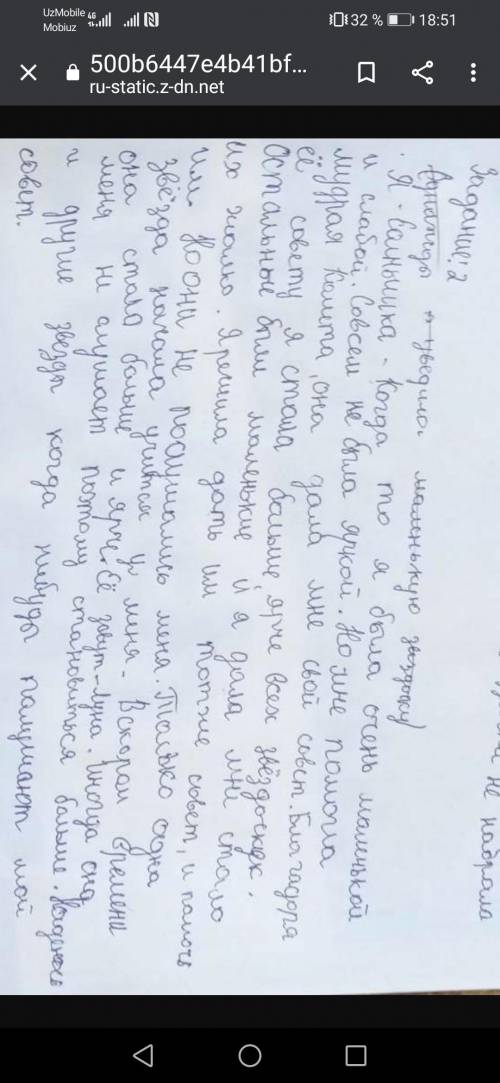 UzMobile 4G
Mobiuz
32 %
18:51
500b6447e4b41bf...
ru-static.z-dn.net
не набрала
Задание: 2
Однажды увидела маленькую звездочку
. Я - Солнышка - Когда то я была очень маленькой
и слабой. Совсем не была яркой. Но мне помогла
мудрая Комета, она дала мне свой совет. Благадоря
её совету я стала больше, ярче всех звёздочек.
Остальные были маленькие и я дала мне стало
их жалко. Я решила дать им тотже совет, и памочь
им. Но они не послушались меня. Только одна
звёзда начала учиться у меня. Вскором времени
она стала больше и ярче. Её завут - Луна. Иногда она
меня не слушает поэтому становиться больше. Надеюсь
и другие звезды когда нибудь паслушают мой
совет.